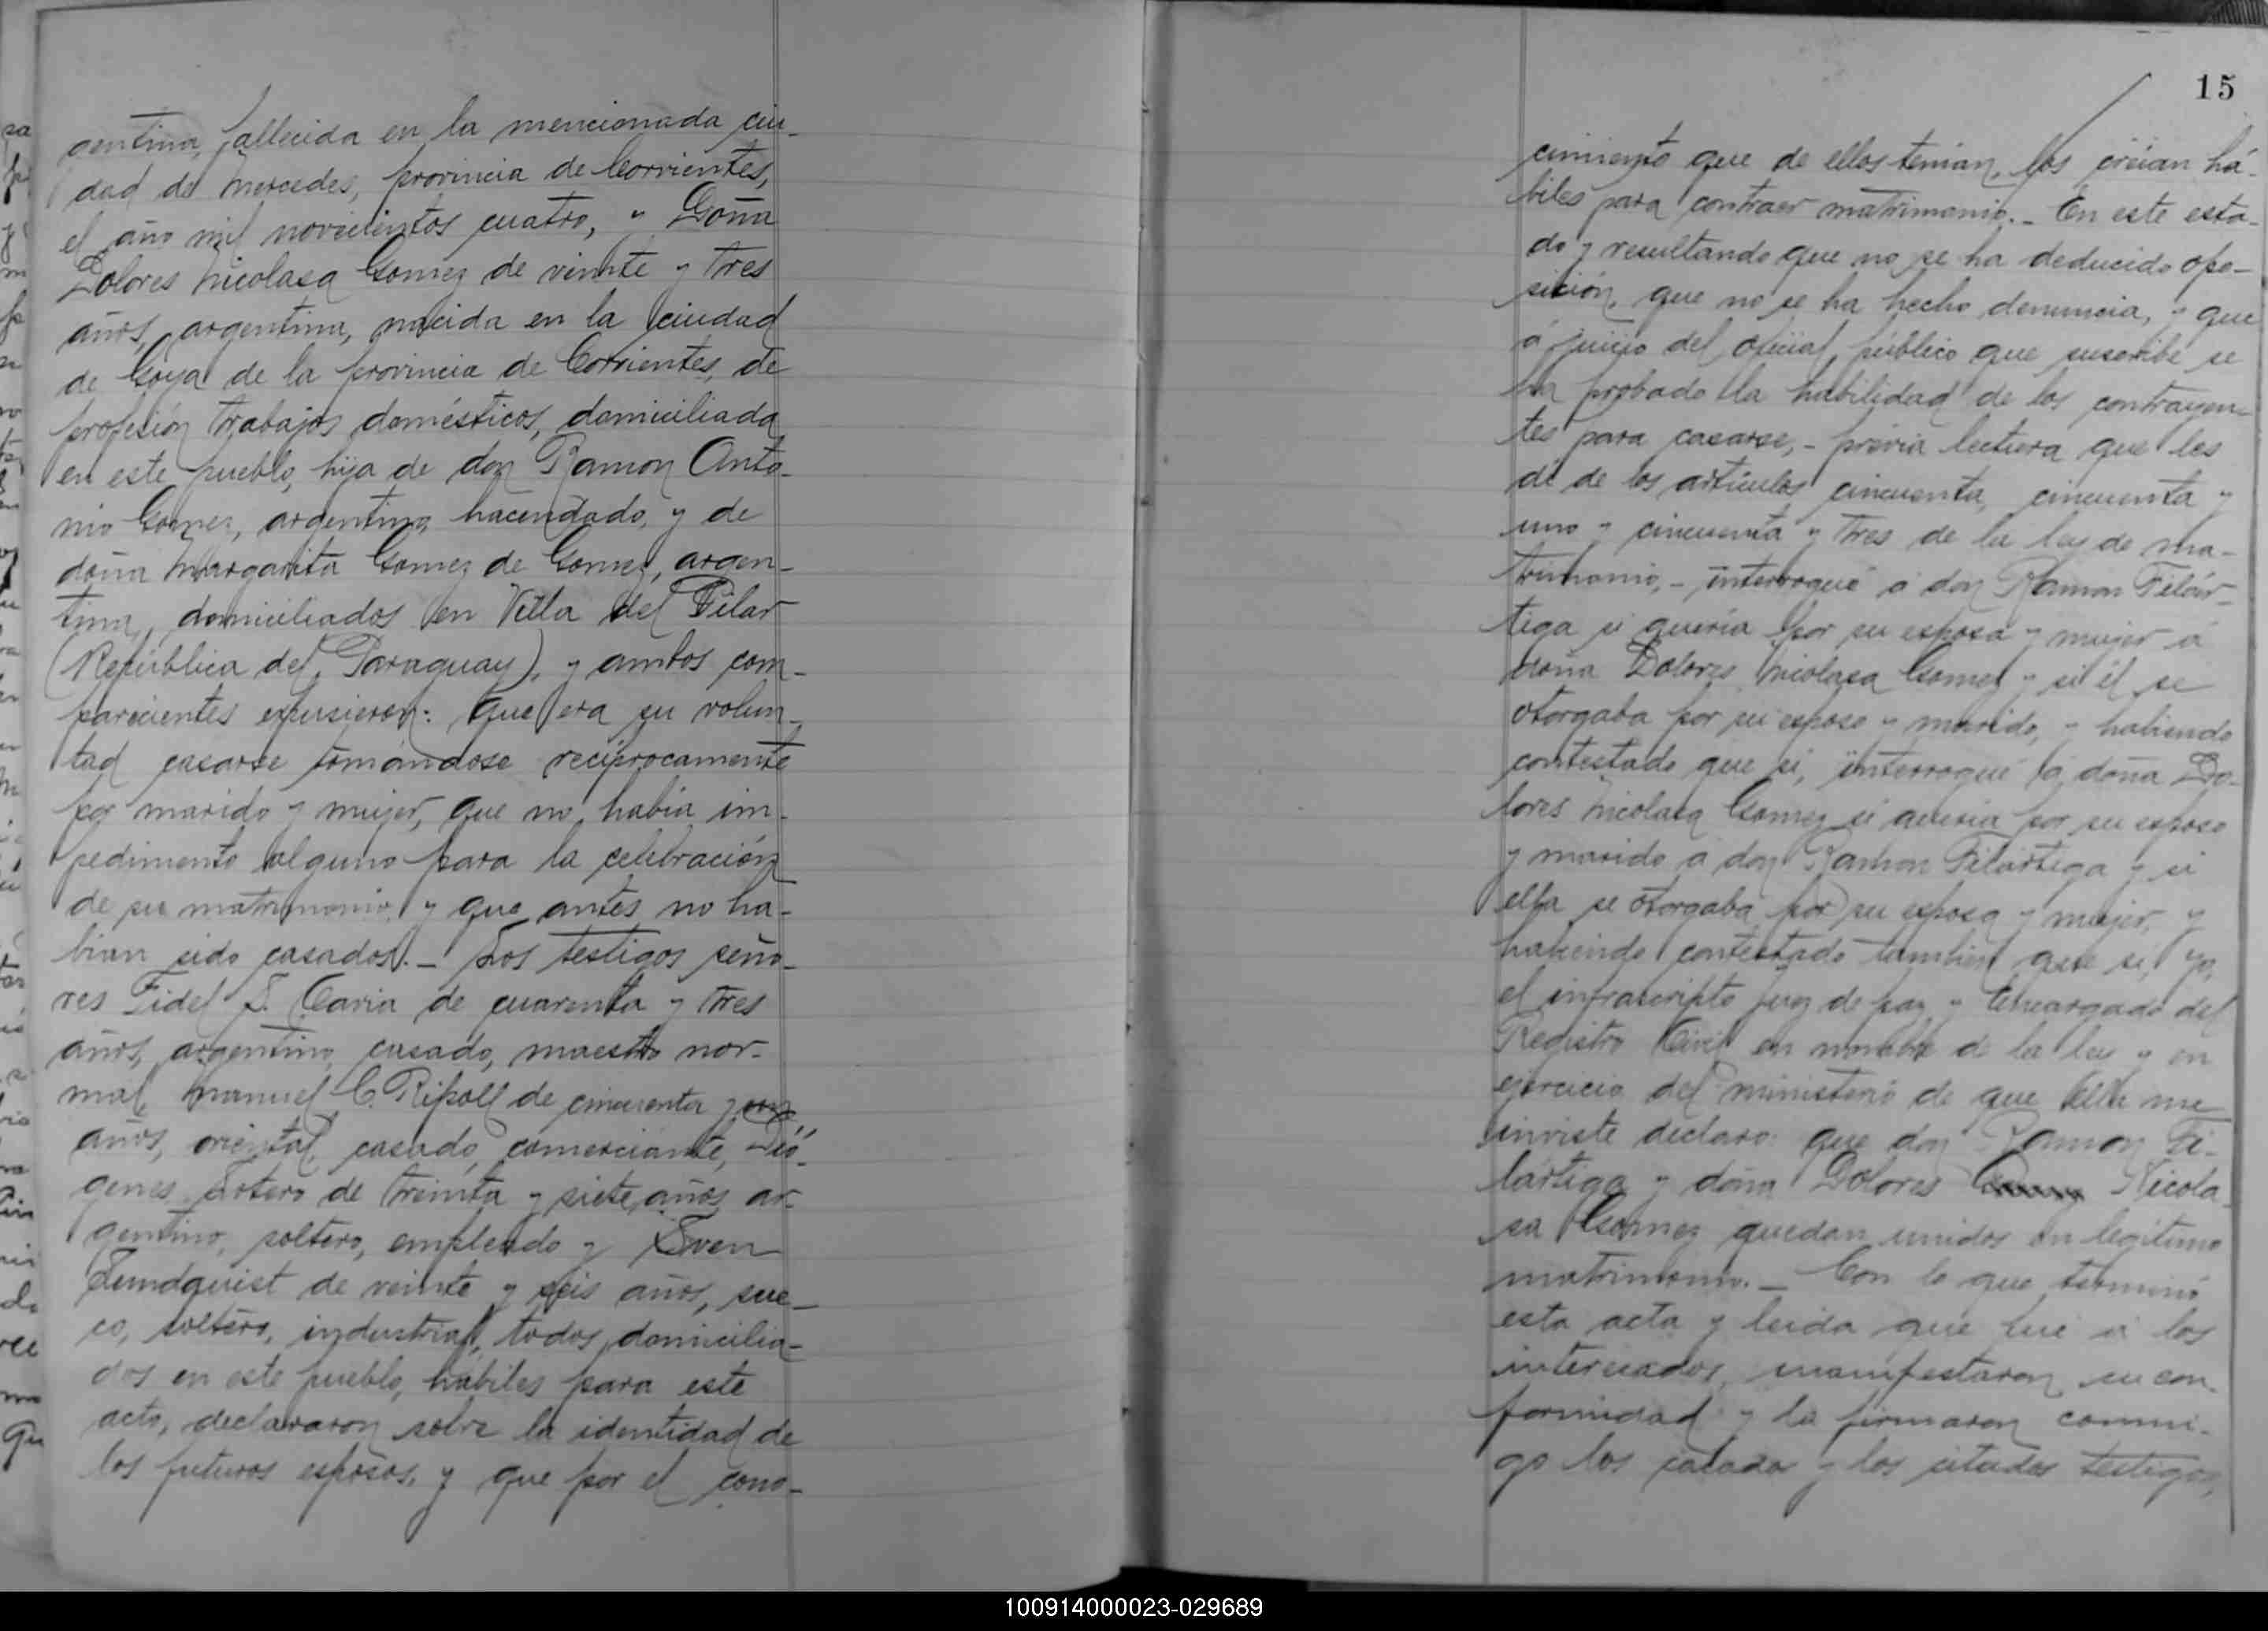 gentina, fallecida en la mencionada ciu-
dad de Mercedes, provincia de Corrientes,
el año mil novecientos cuatro, y Doña
Dolores Nicolasa Gomez de veinte y tres
años, argentina, nacida en la ciudad
de Goya de la provincia de Corrientes, de
profesión trabajos domésticos, domiciliada
en este pueblo, hija de don Ramon Anto-
nio Gomez, argentino, hacendado, y de
doña Margarita Gomez de Gomez, argen-
tina, domiciliados en Villa del Pilar
(República del Paraguay), y ambos com-
parecientes expusieron: que era su volun-
tad casarse tomándose recíprocamente
por marido y mujer, que no había im-
pedimento alguno para la celebración
de su matrimonio, y que antes no ha-
bian sido casados. — Los testigos seño-
res Fidel S. Cavia de cuarenta y tres
años, argentino, casado, maestro nor-
mal, Manuel C. Ripoll de cincuenta y un
años, oriental, casado, comerciante, Dió-
genes Sotero de treinta y siete años, ar-
gentino, soltero, empleado y Sven
Lundquist de veinte y seis años, sue-
co, soltero, industrial, todos domicilia-
dos en este pueblo, hábiles para este
acto, declararon sobre la identidad de
los futuros esposos, y que por el cono-
15
cimiento que de ellos tenían, los creían há-
biles para contraer matrimonio. - En este esta-
do y resultando que no se ha deducido opo-
sición, que no se ha hecho denuncia, y que
á juicio del oficial público que suscribe se
ha probado la habilidad de los contrayen-
tes para casarse, - prévia lectura que les
dí de los artículos cincuenta, cincuenta y
uno y cincuenta y tres de la ley de ma-
trimonio, - interrogué á don Ramon Filár-
tiga si quería por su esposa y mujer á
doña Dolores Nicolasa Gomez y si él se
otorgaba por su esposo y marido, y habiendo
contestado que sí, interrogué á doña Do-
lores Nicolasa Gomez si quería por su esposo
y marido á don Ramon Filártiga y si
ella se otorgaba por su esposa y mujer, y
habiendo contestado también que si, yo,
el infrascripto Juez de paz y Encargado del
Registro Civil en nombre de la ley y en
ejercicio del ministerio de que ella me
inviste declaro: que don Ramon Fi-
lártiga y doña Dolores Nicola-
sa Gomez quedan unidos en legítimo
matrimonio. — Con lo que terminó
esta acta y leida que fué á los
interesados, manifestaron su con-
formidad y la firmaron conmi-
go los casados y los citados testigos,
100914000023-029689